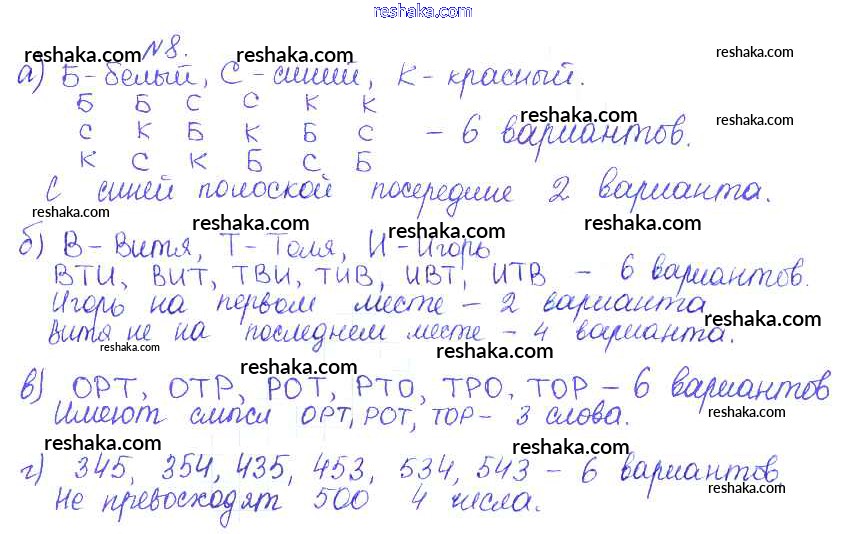 reshaka.com
№8.
reshaka.com reshaka.com reshaka.com
а) Б-белый, С-синий, К-красный.
Б Б С С К К
reshaka.com reshaka.com
С К Б К Б С - 6 вариантов.
К С К Б С Б
С синей полоской посередине 2 варианта.
reshaka.com reshaka.com reshaka.com reshaka.com
б) В-Витя, Т-Толя, И-Игорь
ВТИ, ВИТ, ТВИ, ТИВ, ИВТ, ИТВ - 6 вариантов.
Игорь на первом месте - 2 варианта
reshaka.com
Витя не на последнем месте - 4 варианта.
reshaka.com reshaka.com
reshaka.com
в) ОРТ, ОТР, РОТ, РТО, ТРО, ТОР - 6 вариантов
Имеют смысл ОРТ, РОТ, ТОР- 3 слова.
reshaka.com
reshaka.com reshaka.com
г) 345, 354, 435, 453, 534, 543 - 6 вариантов
reshaka.com
Не превосходят 500 4 числа.
reshaka.com reshaka.com